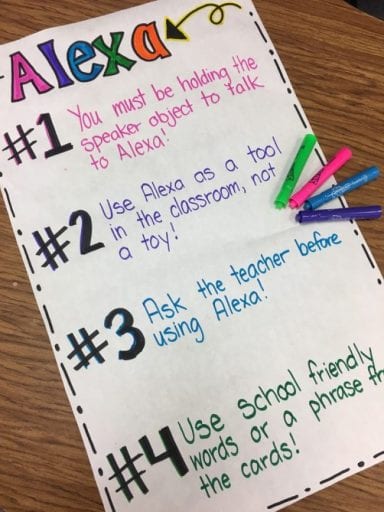 Alexa
#1 You must be holding the
speaker object to talk
to Alexa!
#2 Use Alexa as a tool
in the classroom, not
a toy!
#3 Ask the teacher before
using Alexa!
#4 Use school friendly
words or a phrase
the cards!